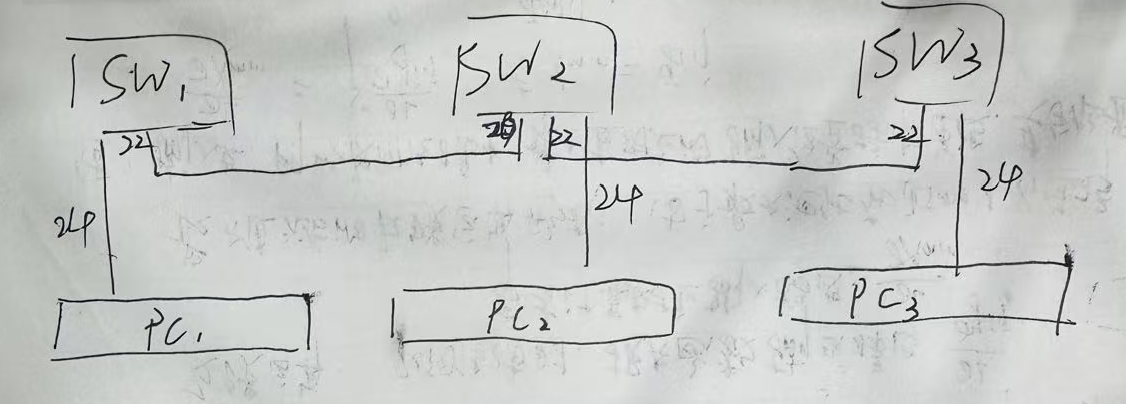 SW1 SW2 SW3
22 22 22
24 24 24
PC1 PC2 PC3